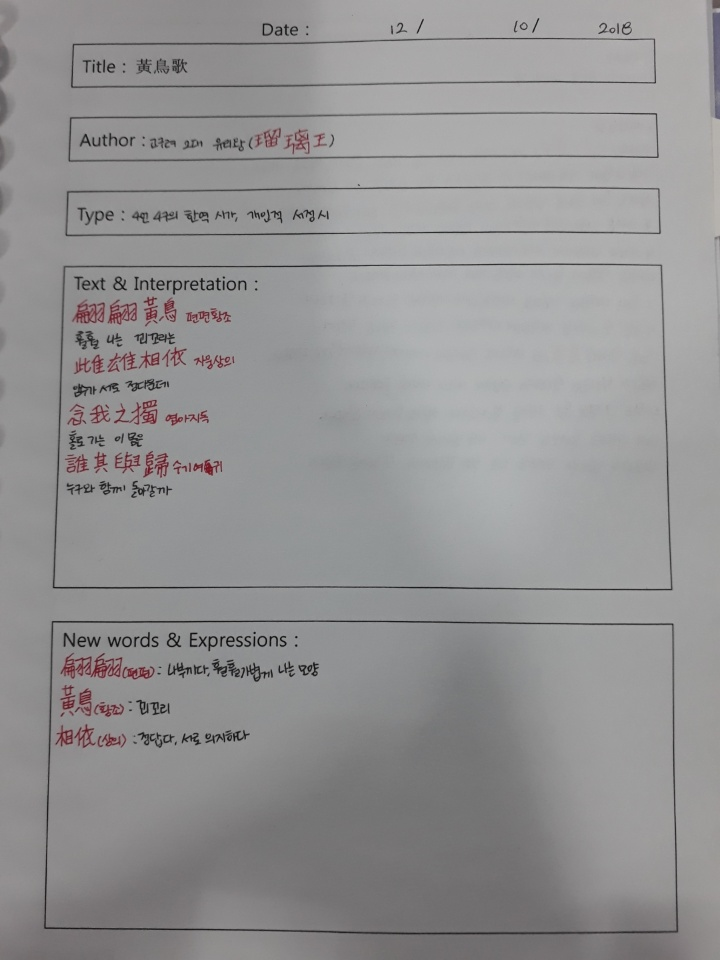 Date : 12 / 10 / 2018
Title : 黃鳥歌
Author : 고구려 2대 유리왕 (瑠璃王)
Type : 4언 4구의 한역 시가, 개인적 서정시
Text & Interpretation :
翩翩黃鳥 편편황조
훨훨 나는 꾀꼬리는
雌雄相依 자웅상의
암수가 서로 정다운데
念我之獨 염아지독
홀로 가는 이 몸은
誰其與歸 수기여귀
누구와 함께 돌아갈까
New words & Expressions :
翩翩(편편) : 나부끼다, 훨훨 가볍게 나는 모양
黃鳥(황조) : 꾀꼬리
相依(상의) : 정답다, 서로 의지하다